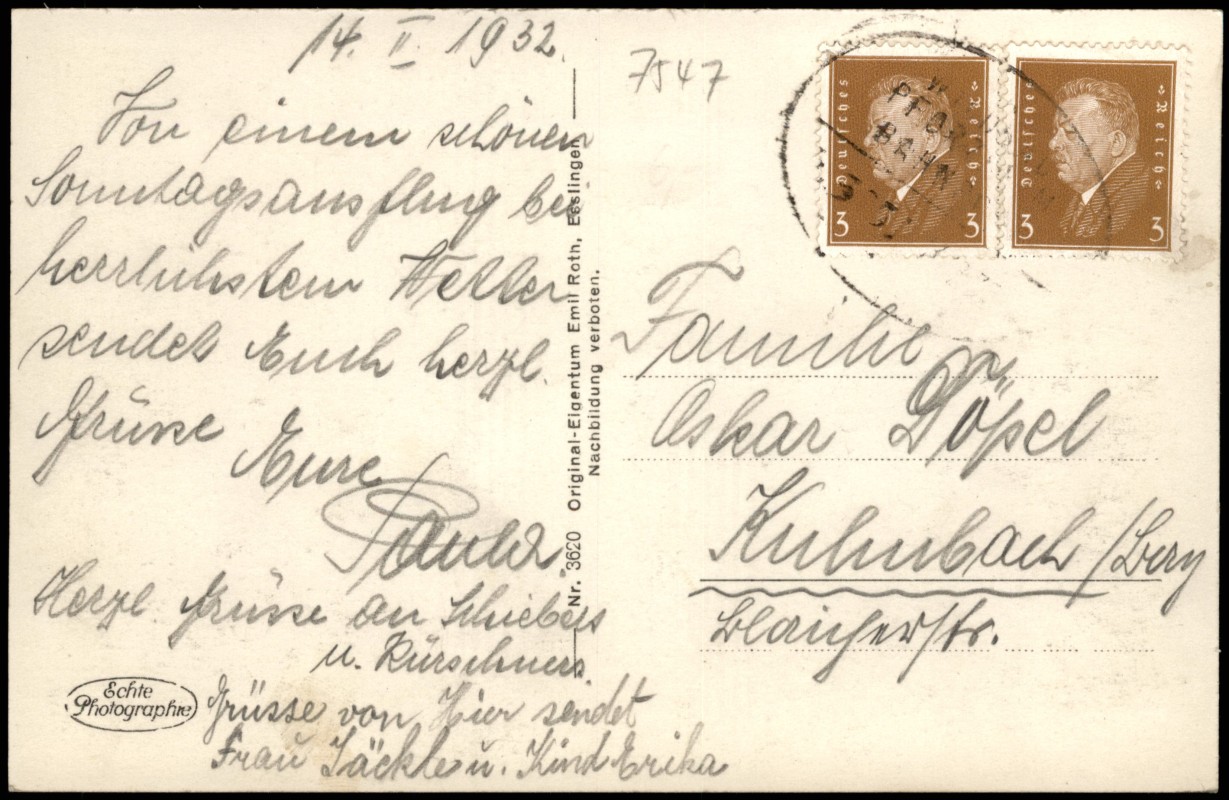 14. II. 1932.
Von einem schönen
Sonntagsausflug bei
herrlichstem Wetter
sendet Euch herzl.
Grüsse
Eure
Paula.
Herzl Grüsse an Schiebels
u. Kürschners.
Grüsse von Hier sendet
Frau Jäckle u. Kind Erika
Echte
Photographie
Nr. 3620 Original-Eigentum Emil Roth, Esslingen
Nachbildung verboten.
7547
Deutsches Reich
3 3
Deutsches Reich
3 3
BAHN
Familie
Oskar Göpel
Kulmbach /Bay
Blaicherstr.